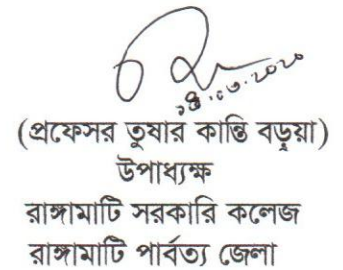 ১৪.০৩.২০২০
(প্রফেসর তুষার কান্তি বড়ুয়া)
উপাধ্যক্ষ
রাঙ্গামাটি সরকারি কলেজ
রাঙ্গামাটি পার্বত্য জেলা